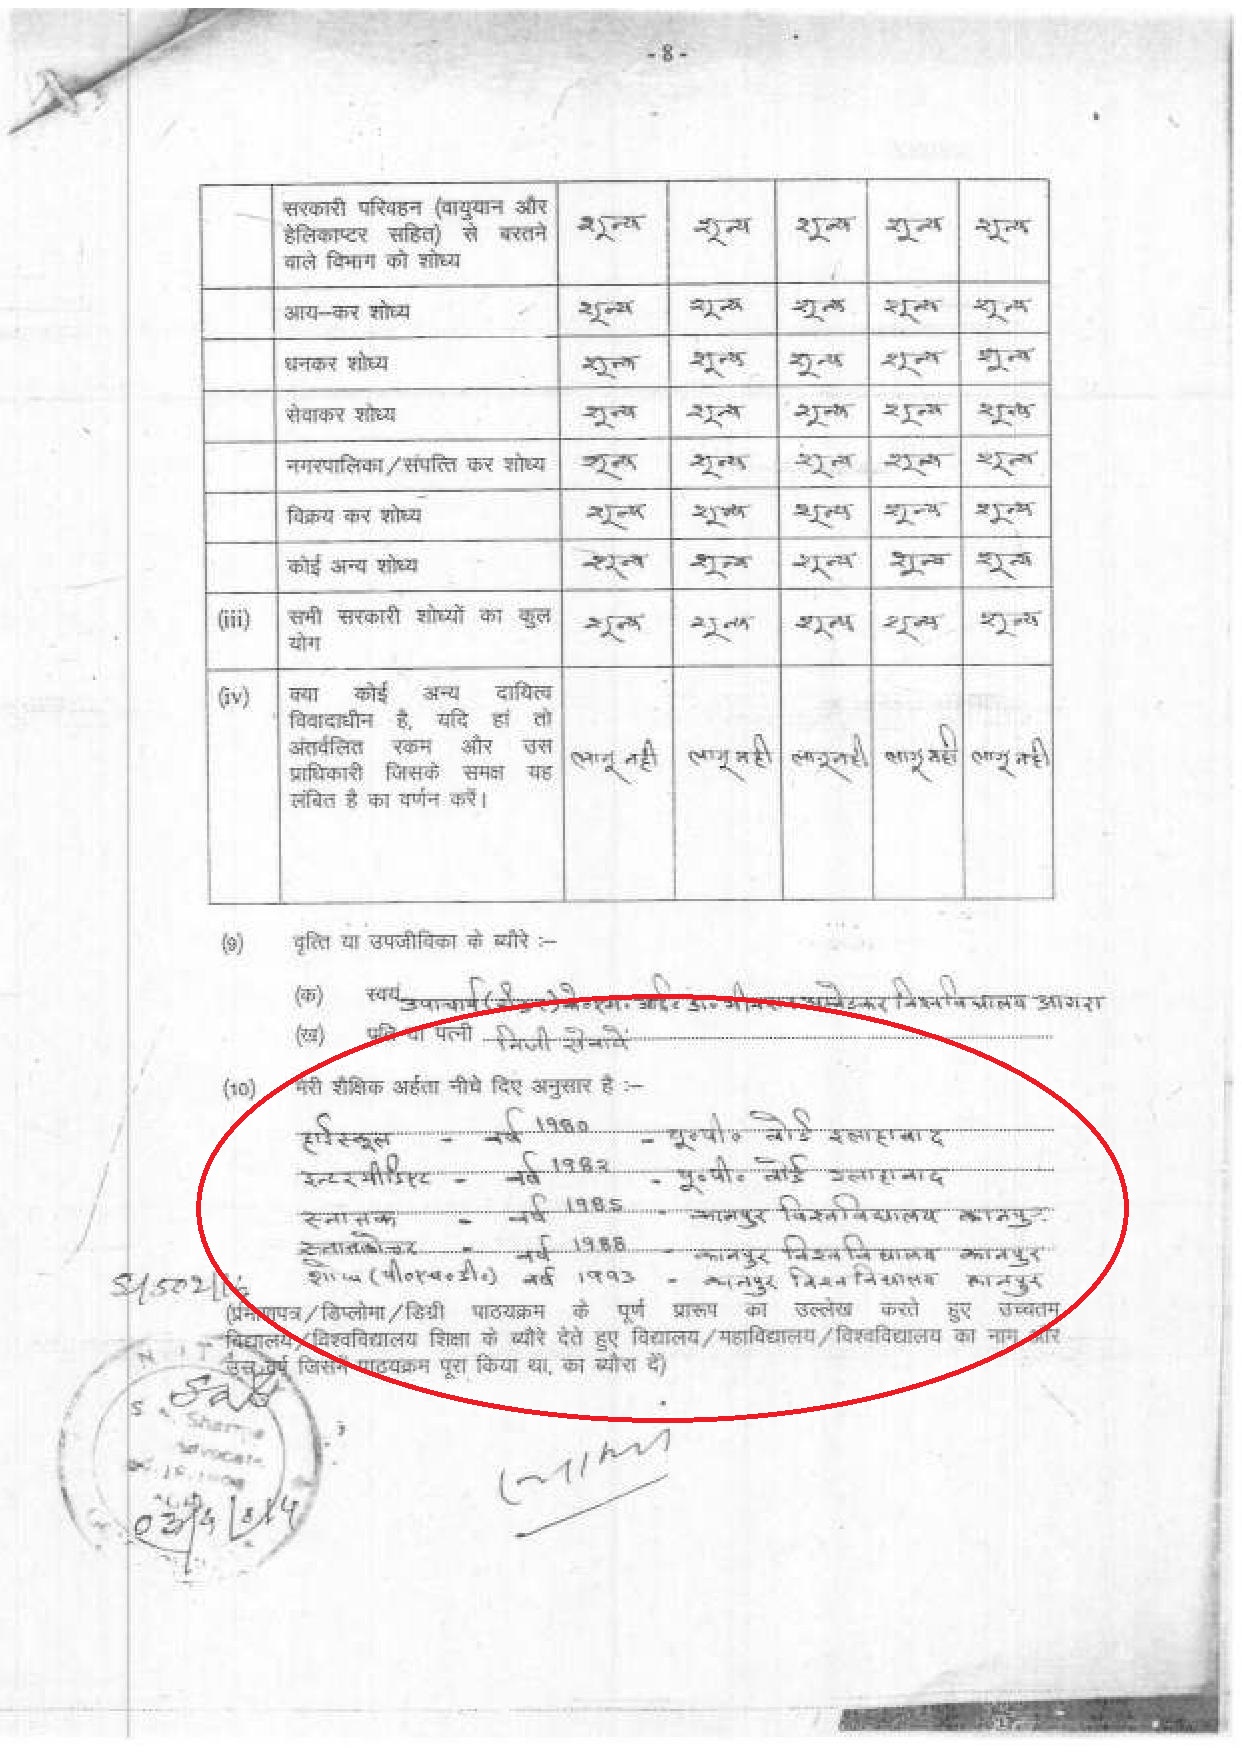 - 8 -
सरकारी परिवहन (वायुयान और शून्य शून्य शून्य शून्य शून्य
हेलिकाप्टर सहित) से बरतने
वाले विभाग को शोध्य
आय-कर शोध्य शून्य शून्य शून्य शून्य शून्य
धनकर शोध्य शून्य शून्य शून्य शून्य शून्य
सेवाकर शोध्य शून्य शून्य शून्य शून्य शून्य
नगरपालिका/संपत्ति कर शोध्य शून्य शून्य शून्य शून्य शून्य
विक्रय कर शोध्य शून्य शून्य शून्य शून्य शून्य
कोई अन्य शोध्य शून्य शून्य शून्य शून्य शून्य
(iii) सभी सरकारी शोध्यों का कुल शून्य शून्य शून्य शून्य शून्य
योग
(iv) क्या कोई अन्य दायित्व
विवादाधीन है, यदि हां तो
अंतर्वलित रकम और उस लागू नही लागू नही लागू नही लागू नही लागू नही
प्राधिकारी जिसके समक्ष यह
लंबित है का वर्णन करें।
(9) वृत्ति या उपजीविका के ब्यौरे :–
(क) स्वयं उपाचार्य (रीडर) के०एम० आई० डा० भीमराव अम्बेडकर विश्वविद्यालय आगरा
(ख) पति या पत्नी निजी सेवायें
(10) मेरी शैक्षिक अर्हता नीचे दिए अनुसार है :–
हाईस्कूल - वर्ष 1980 - यू०पी० बोर्ड इलाहाबाद
इन्टरमीडिएट - वर्ष 1982 - यू०पी० बोर्ड इलाहाबाद
स्नातक - वर्ष 1985 - कानपुर विश्वविद्यालय कानपुर
स्नातकोत्तर - वर्ष 1988 - कानपुर विश्वविद्यालय कानपुर
शोध (पी०एच०डी०) वर्ष 1993 - कानपुर विश्वविद्यालय कानपुर
(प्रमाणपत्र/डिप्लोमा/डिग्री पाठयक्रम के पूर्ण प्रारूप का उल्लेख करते हुए उच्चतम
विद्यालय/विश्वविद्यालय शिक्षा के ब्यौरे देते हुए विद्यालय/महाविद्यालय/विश्वविद्यालय का नाम और
उस वर्ष जिसमें पाठयक्रम पूरा किया था, का ब्यौरा दें)
Sharma
Advocate